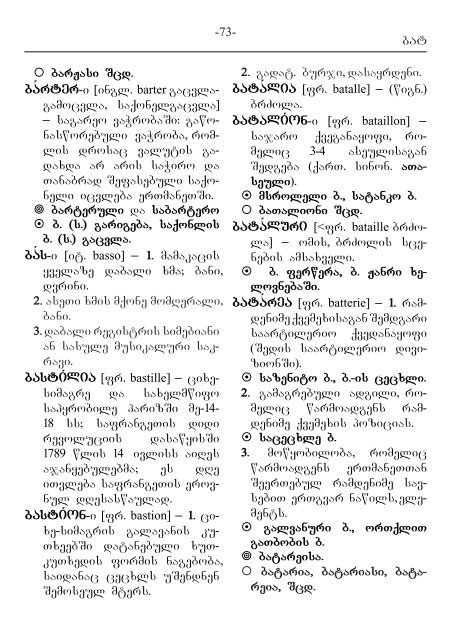 -73-
ბატ
○ ბარჟასი შცდ.
ბარტერ-ი [ინგლ. barter გაცვლა-
გამოცვლა, საქონელგაცვლა]
– საგარეო ვაჭრობაში: გაწო-
ნასწორებული ვაჭრობა, რომ-
ლის დროსაც ვალუტის გა-
დახდა არ არის საჭირო და
თანაბრად შეფასებული საქო-
ნელი იცვლება ერთმანეთში.
⊚ ბარტერული და საბარტერო
⊙ ბ. (ს.) გარიგება, საქონლის
ბ. (ს.) გაცვლა.
ბას-ი [იტ. basso] – 1. მამაკაცის
ყველაზე დაბალი ხმა; ბანი,
დვრინი.
2. ასეთი ხმის მქონე მომღერალი,
ბანი.
3. დაბალი რეგისტრის სიმებიანი
ან სასულე მუსიკალური საკ-
რავი.
ბასტილია [ფრ. bastille] – ციხე-
სიმაგრე და სახელმწიფო
საპყრობილე პარიზში მე-14-
18 სს; საფრანგეთის დიდი
რევოლუციის დასაწყისში
1789 წლის 14 ივლისს აიღეს
აჯანყებულებმა; ეს დღე
ითვლება საფრანგეთის ეროვ-
ნულ დღესასწაულად.
ბასტიონ-ი [ფრ. bastion] – 1. ცი-
ხე-სიმაგრის გალავანის კუ-
თხეებში დატანებული ხუთ-
კუთხედის ფორმის ნაგებობა,
საიდანაც ცეცხლს უშენდნენ
შემოსეულ მტერს.
2. გადატ. ბურჯი, დასაყრდენი.
ბატალია [ფრ. batalle] – (წიგნ.)
ბრძოლა.
ბატალიონ-ი [ფრ. bataillon] –
საჯარო ქვეგანაყოფი, რო-
მელიც 3-4 ასეულისაგან
შედგება (ქართ. სინონ. ათა-
სეული).
⊙ მსროლელი ბ., სატანკო ბ.
○ ბათალიონი შცდ.
ბატალური [<ფრ. bataille ბრძო-
ლა] – ომის, ბრძოლის სცე-
ნების ამსახველი.
⊙ ბ. ფერწერა, ბ. ჟანრი ხე-
ლოვნებაში.
ბატარეა [ფრ. batterie] – 1. რამ-
დენიმე ქვემეხისაგან შემდგარი
საარტილერიო ქვედანაყოფი
(შედის საარტილერიო დივი-
ზიონში).
⊙ საზენიტო ბ., ბ.-ის ცეცხლი.
2. გამაგრებული ადგილი, რო-
მელიც წარმოადგენს რამ-
დენიმე ქვემეხის პოზიციას.
⊙ საცეცხლე ბ.
3. მოწყობილობა, რომელიც
წარმოადგენს ერთმანეთთან
შეერთებულ რამდენიმე სავ-
სებით ერთგვარ ნაწილს, ელე-
მენტს.
⊙ გალვანური ბ., ორთქლით
გათბობის ბ.
⊚ ბატარეისა.
○ ბატარია, ბატარიასი, ბატა-
რეია, შცდ.